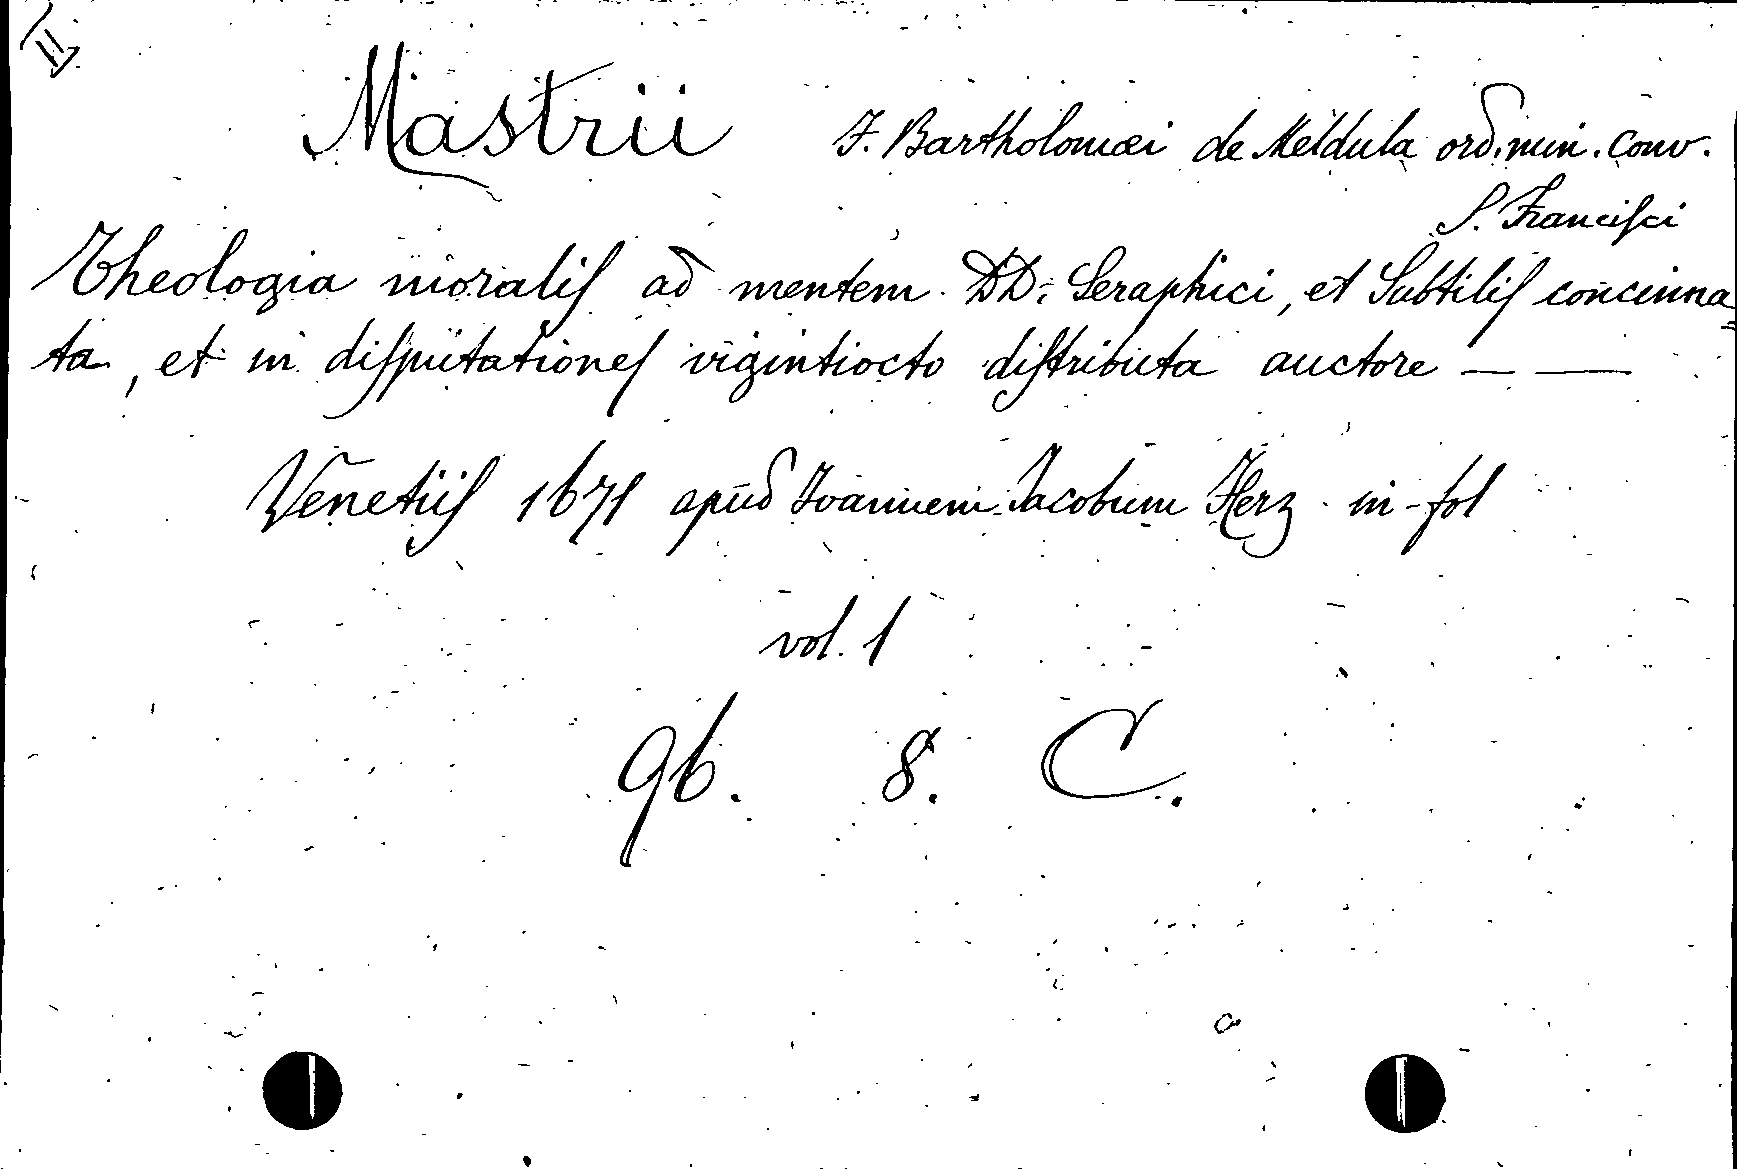 II
Mastrii F. Bartholomæi de Meldula ord. min. Conv.
S. Franciſci
Theologia moraliſ ad mentem DD: Seraphici, et Subtiliſ concinna=
ta, et in diſputationeſ vigintiocto diſtributa auctore — —
Venetiiſ 1671 apud Ioannem Jacobum Herz in-fol
vol. 1
96. 8. C.